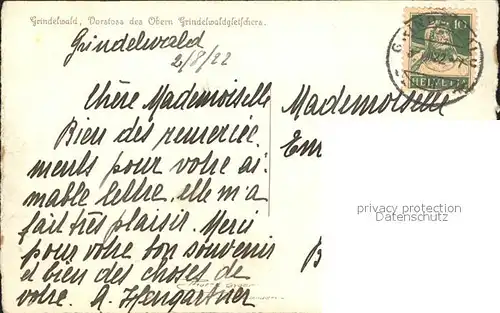 Grindelwald, Vorstoss des Obern Grindelwaldgletschers.
Grindelwald
2/8/22
Chère Mademoiselle
Bien des remercie.
ments pour votre ai-
mable lettre, elle m'a
fait très plaisir. Merci
pour votre bon souvenir
et bien des choses de
votre. A. Hengartner
Mademoiselle
Em
B
10
HELVETIA
privacy protection
Datenschutz